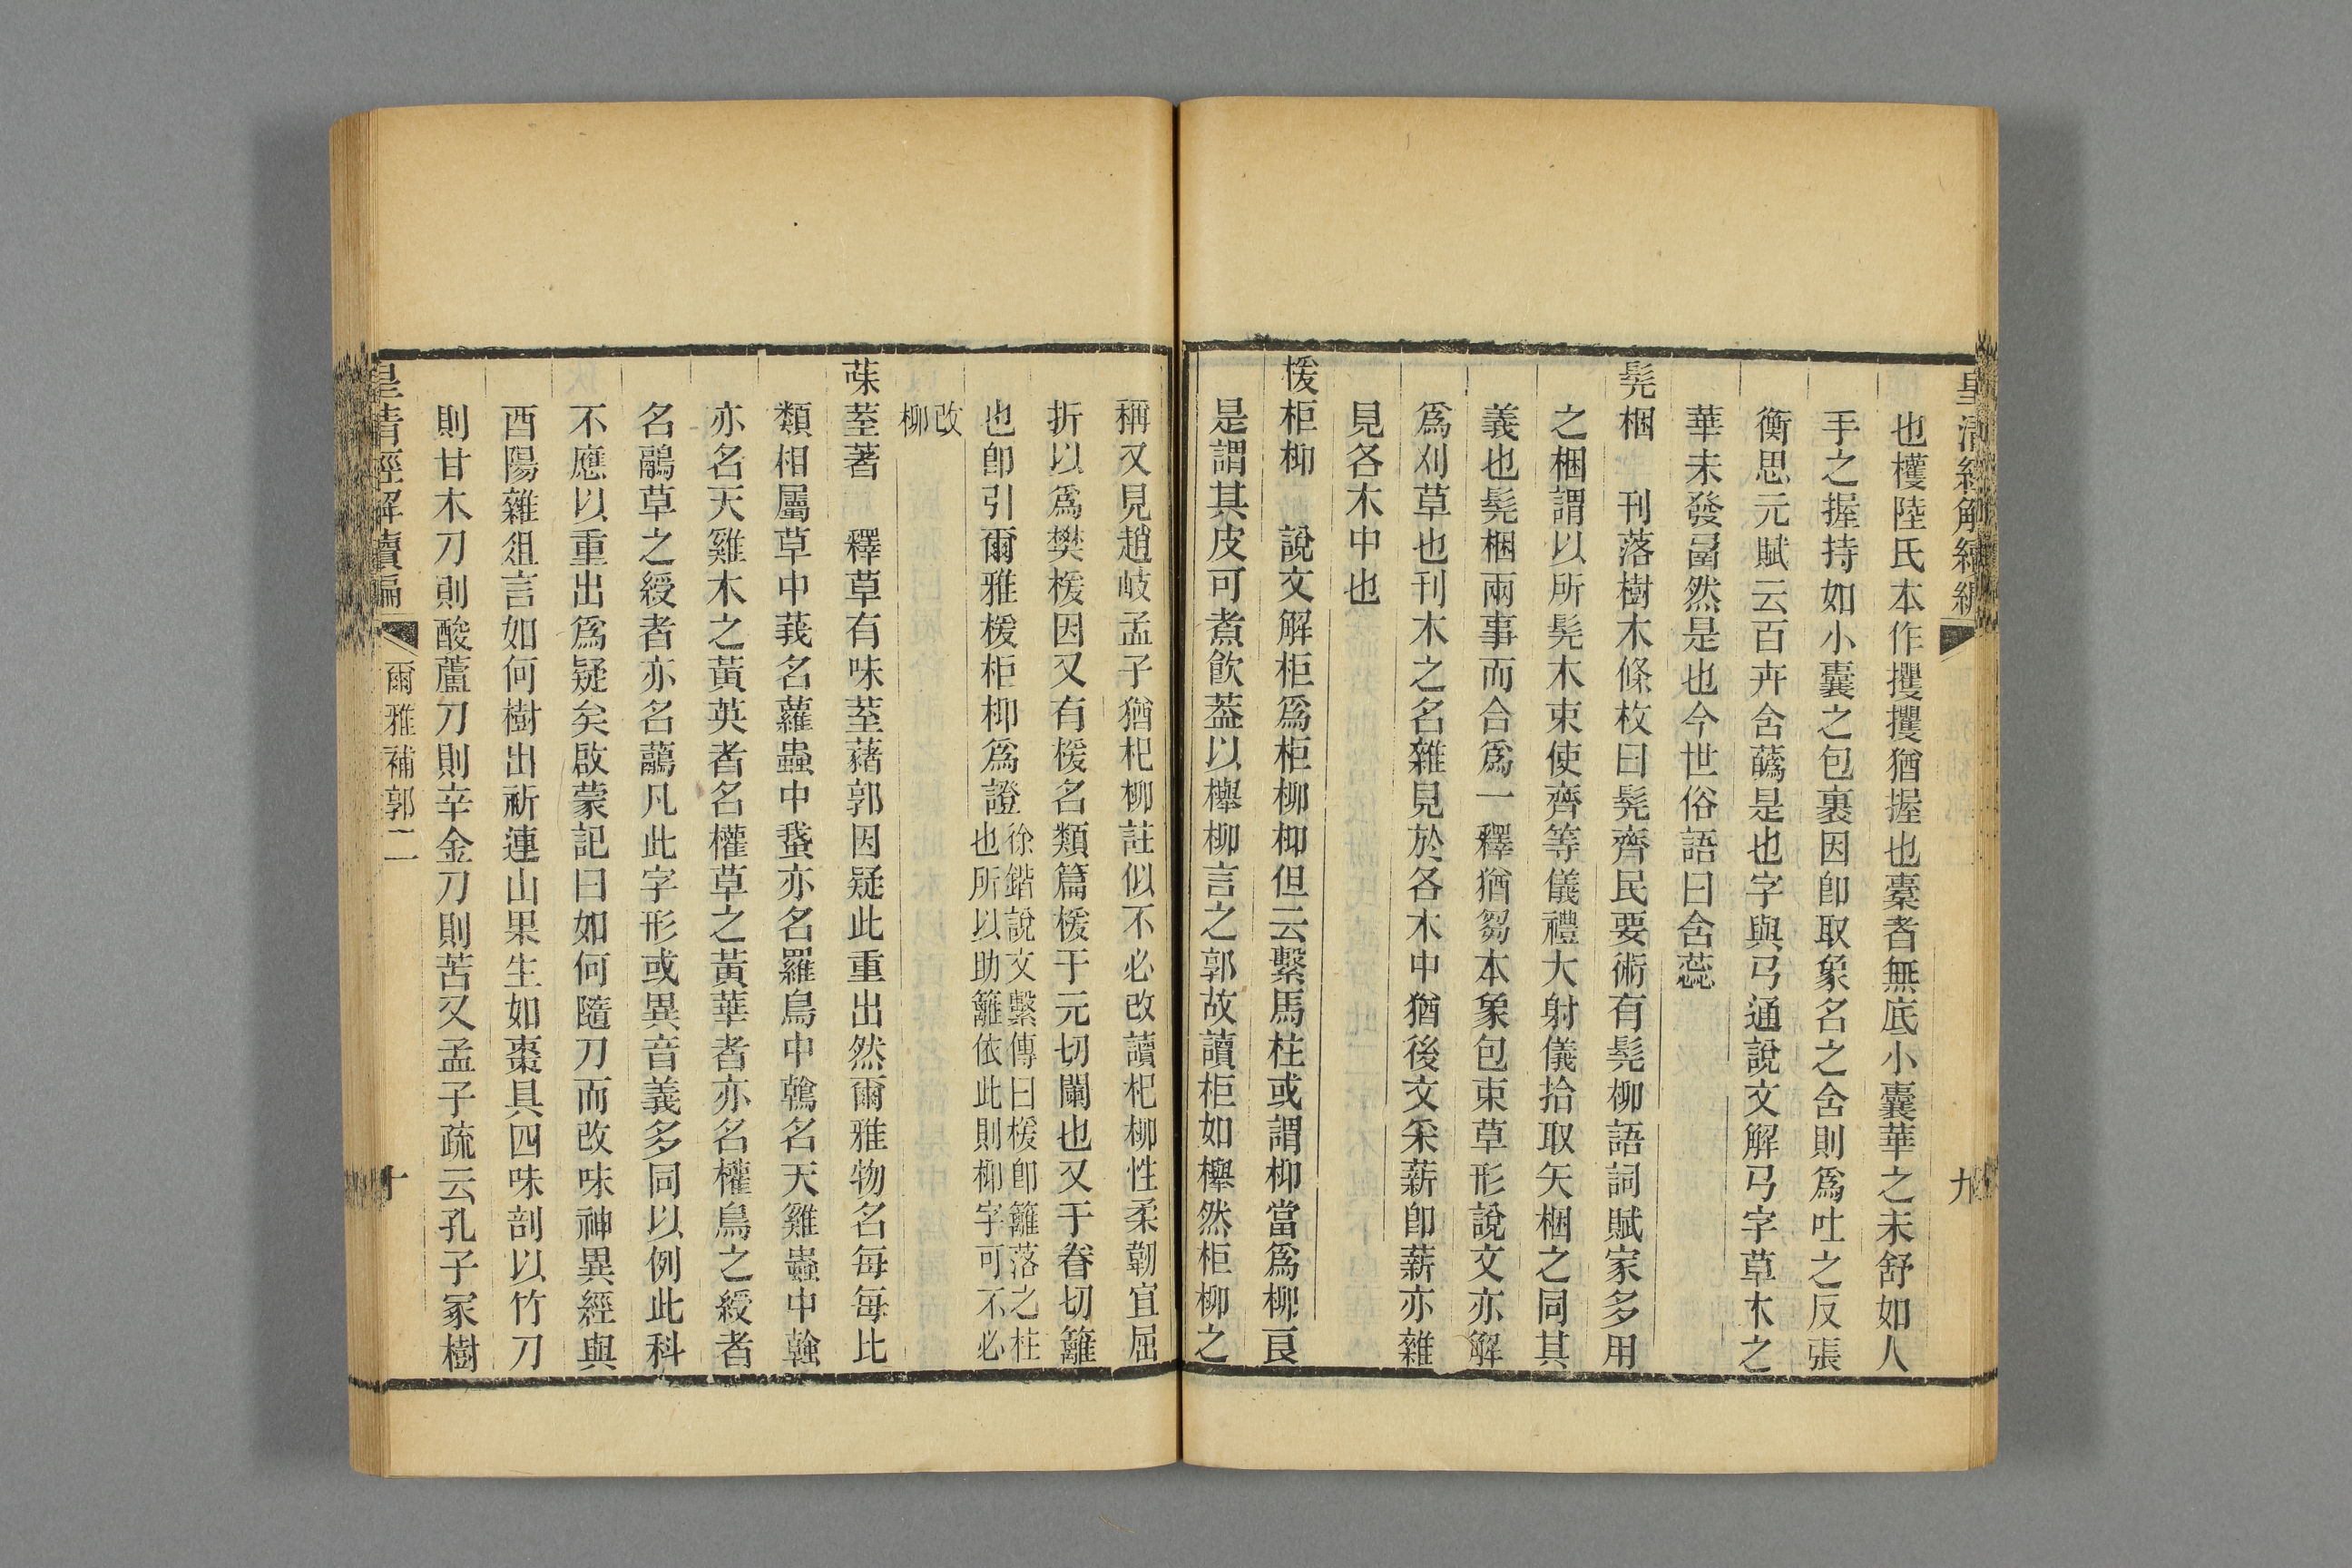 皇清經解續編
九
也欋陸氏本作㩴㩴猶握也橐者無底小囊華之未舒如人
手之握持如小囊之包裹因卽取象名之含則爲吐之反張
衡思元賦云百卉含蘤是也字與𢎘通說文解𢎘字草木之
華未發圅然是也今世俗語曰含蕊
髡梱 刊落樹木條枚曰髡齊民要術有髡柳語詞賦家多用
之梱謂以所髡木束使齊等儀禮大射儀拾取矢梱之同其
義也髡梱兩事而合爲一釋猶芻本象包束草形說文亦解
爲刈草也刊木之名雜見於各木中猶後文采薪卽薪亦雜
見各木中也
楥柜桺 說文解柜爲柜柳桺但云繫馬柱或謂桺當爲柳良
是謂其皮可煮飮葢以櫸柳言之郭故讀柜如櫸然柜柳之
稱又見趙岐孟子猶杞柳註似不必改讀杞柳性柔韌宜屈
折以爲樊楥因又有楥名類篇楥于元切闌也又于眷切籬
也卽引爾雅楥柜桺爲證徐鍇說文繫傳曰楥卽籬落之柱
也所以助籬依此則桺字可不必
改
柳
菋荎著 釋草有味荎藸郭因疑此重出然爾雅物名每每比
類相屬草中莪名蘿蟲中蛾亦名羅鳥中鶾名天雞蟲中螒
亦名天雞木之黃英者名權草之黃華者亦名權鳥之綬者
名鷊草之綬者亦名虉凡此字形或異音義多同以例此科
不應以重出爲疑矣啟蒙記曰如何隨刀而改味神異經與
酉陽雜俎言如何樹出祈連山果生如棗具四味剖以竹刀
則甘木刀則酸蘆刀則辛金刀則苦又孟子疏云孔子冢樹
皇清經解續編
爾雅補郭二
十